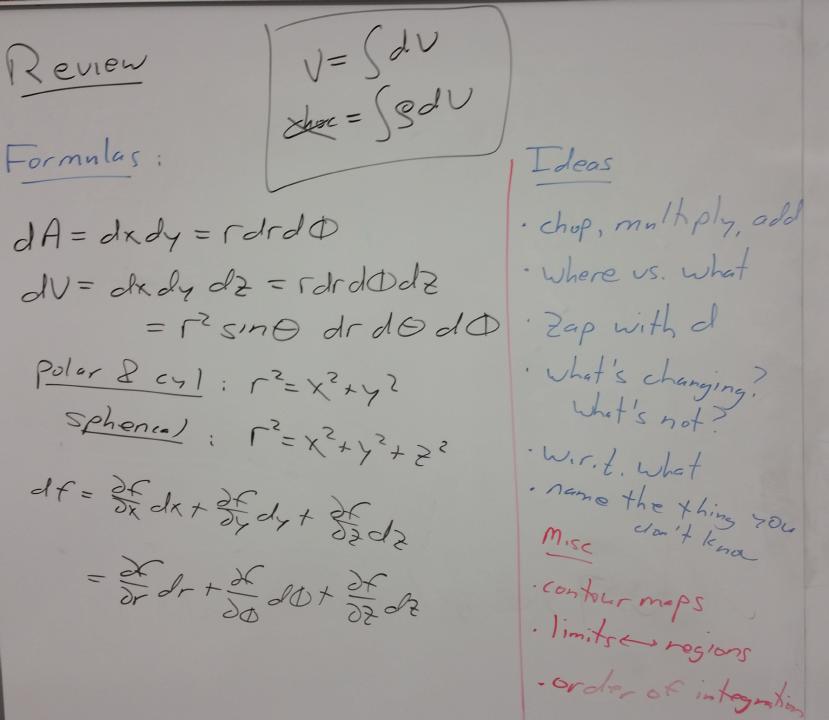 Review
V = ∫dV
= ∫ρdV
Formulas:
dA = dxdy = rdrdΦ
dV = dxdy dz = rdrdΦdz
= r² sinθ dr dθ dΦ
polar & cyl : r² = x² + y²
spherical : r² = x² + y² + z²
df = ∂f/∂x dx + ∂f/∂y dy + ∂f/∂z dz
= ∂f/∂r dr + ∂f/∂Φ dΦ + ∂f/∂z dz
Ideas
· chop, multiply, add
· where vs. what
· Zap with d
· what's changing?
what's not?
· w.r.t. what
· name the thing you
don't know
Misc
· contour maps
· limits ↔ regions
· order of integration